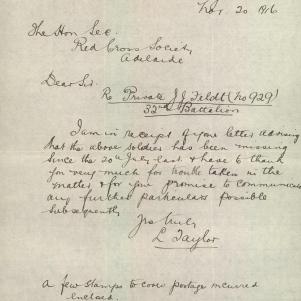 Nov. 20 1916
The Hon Sec.
Red Cross Society
Adelaide
Dear Sir.
Re Private J J Feldt (No 929)
32nd Battalion
I am in receipt of your letter advising
that the above soldier has been missing
since the 20th July last & have to thank
you very much for trouble taken in the
matter, & for your promise to communicate
any further particulars possible
subsequently
Yrs truly
L Taylor
A few stamps to cover postage incurred
enclosed.